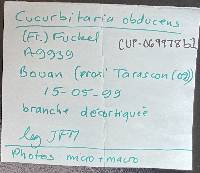 Cucurbitaria obducens
(Fr.) Fuckel
A9939
CUP-069978b2
Bouan (proxi Tarascon (09))
15-05-99
branche décortiquée
leg JFM
Photos micro + macro